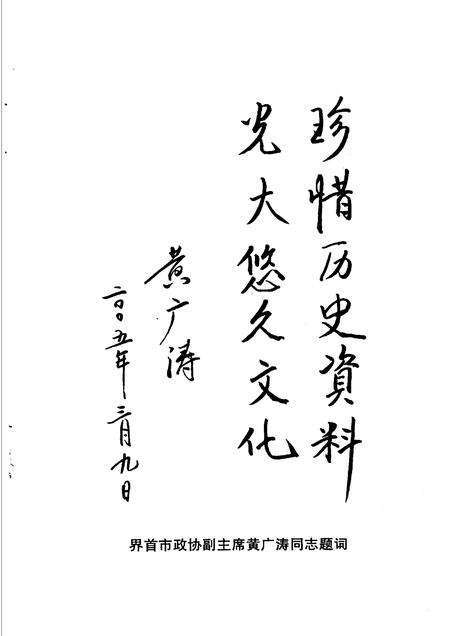 珍惜历史資料
光大悠久文化
黄广涛
二00五年三月九日
界首市政协副主席黄广涛同志题词